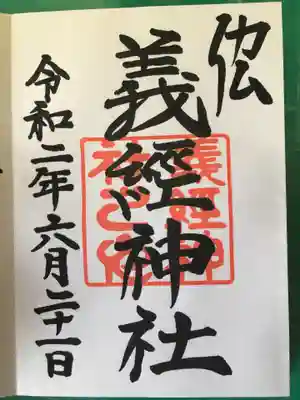 義經神社
義經神
社之印
令和二年六月二十一日